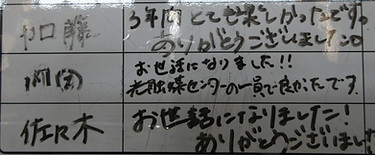 加藤
3年間とても楽しかったです
ありがとうございました。
岡田
お世話になりました!!
光触媒センターの一員で良かたです。
佐々木
お世話になりました!
ありがとうございました